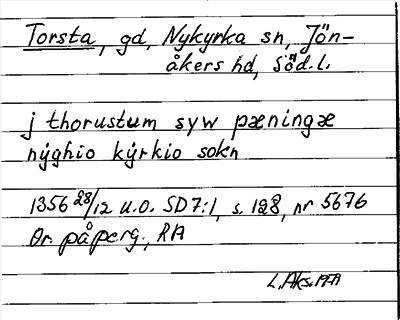 Torsta, gd, Nykyrka sn, Jön-
åkers hd, Söd.l.
j thorustum syw pæningæ
nýghio kýrkio sokn
1356 28/12 u.o. SD 7:1, s. 128, nr 5676
Or. på perg., RA